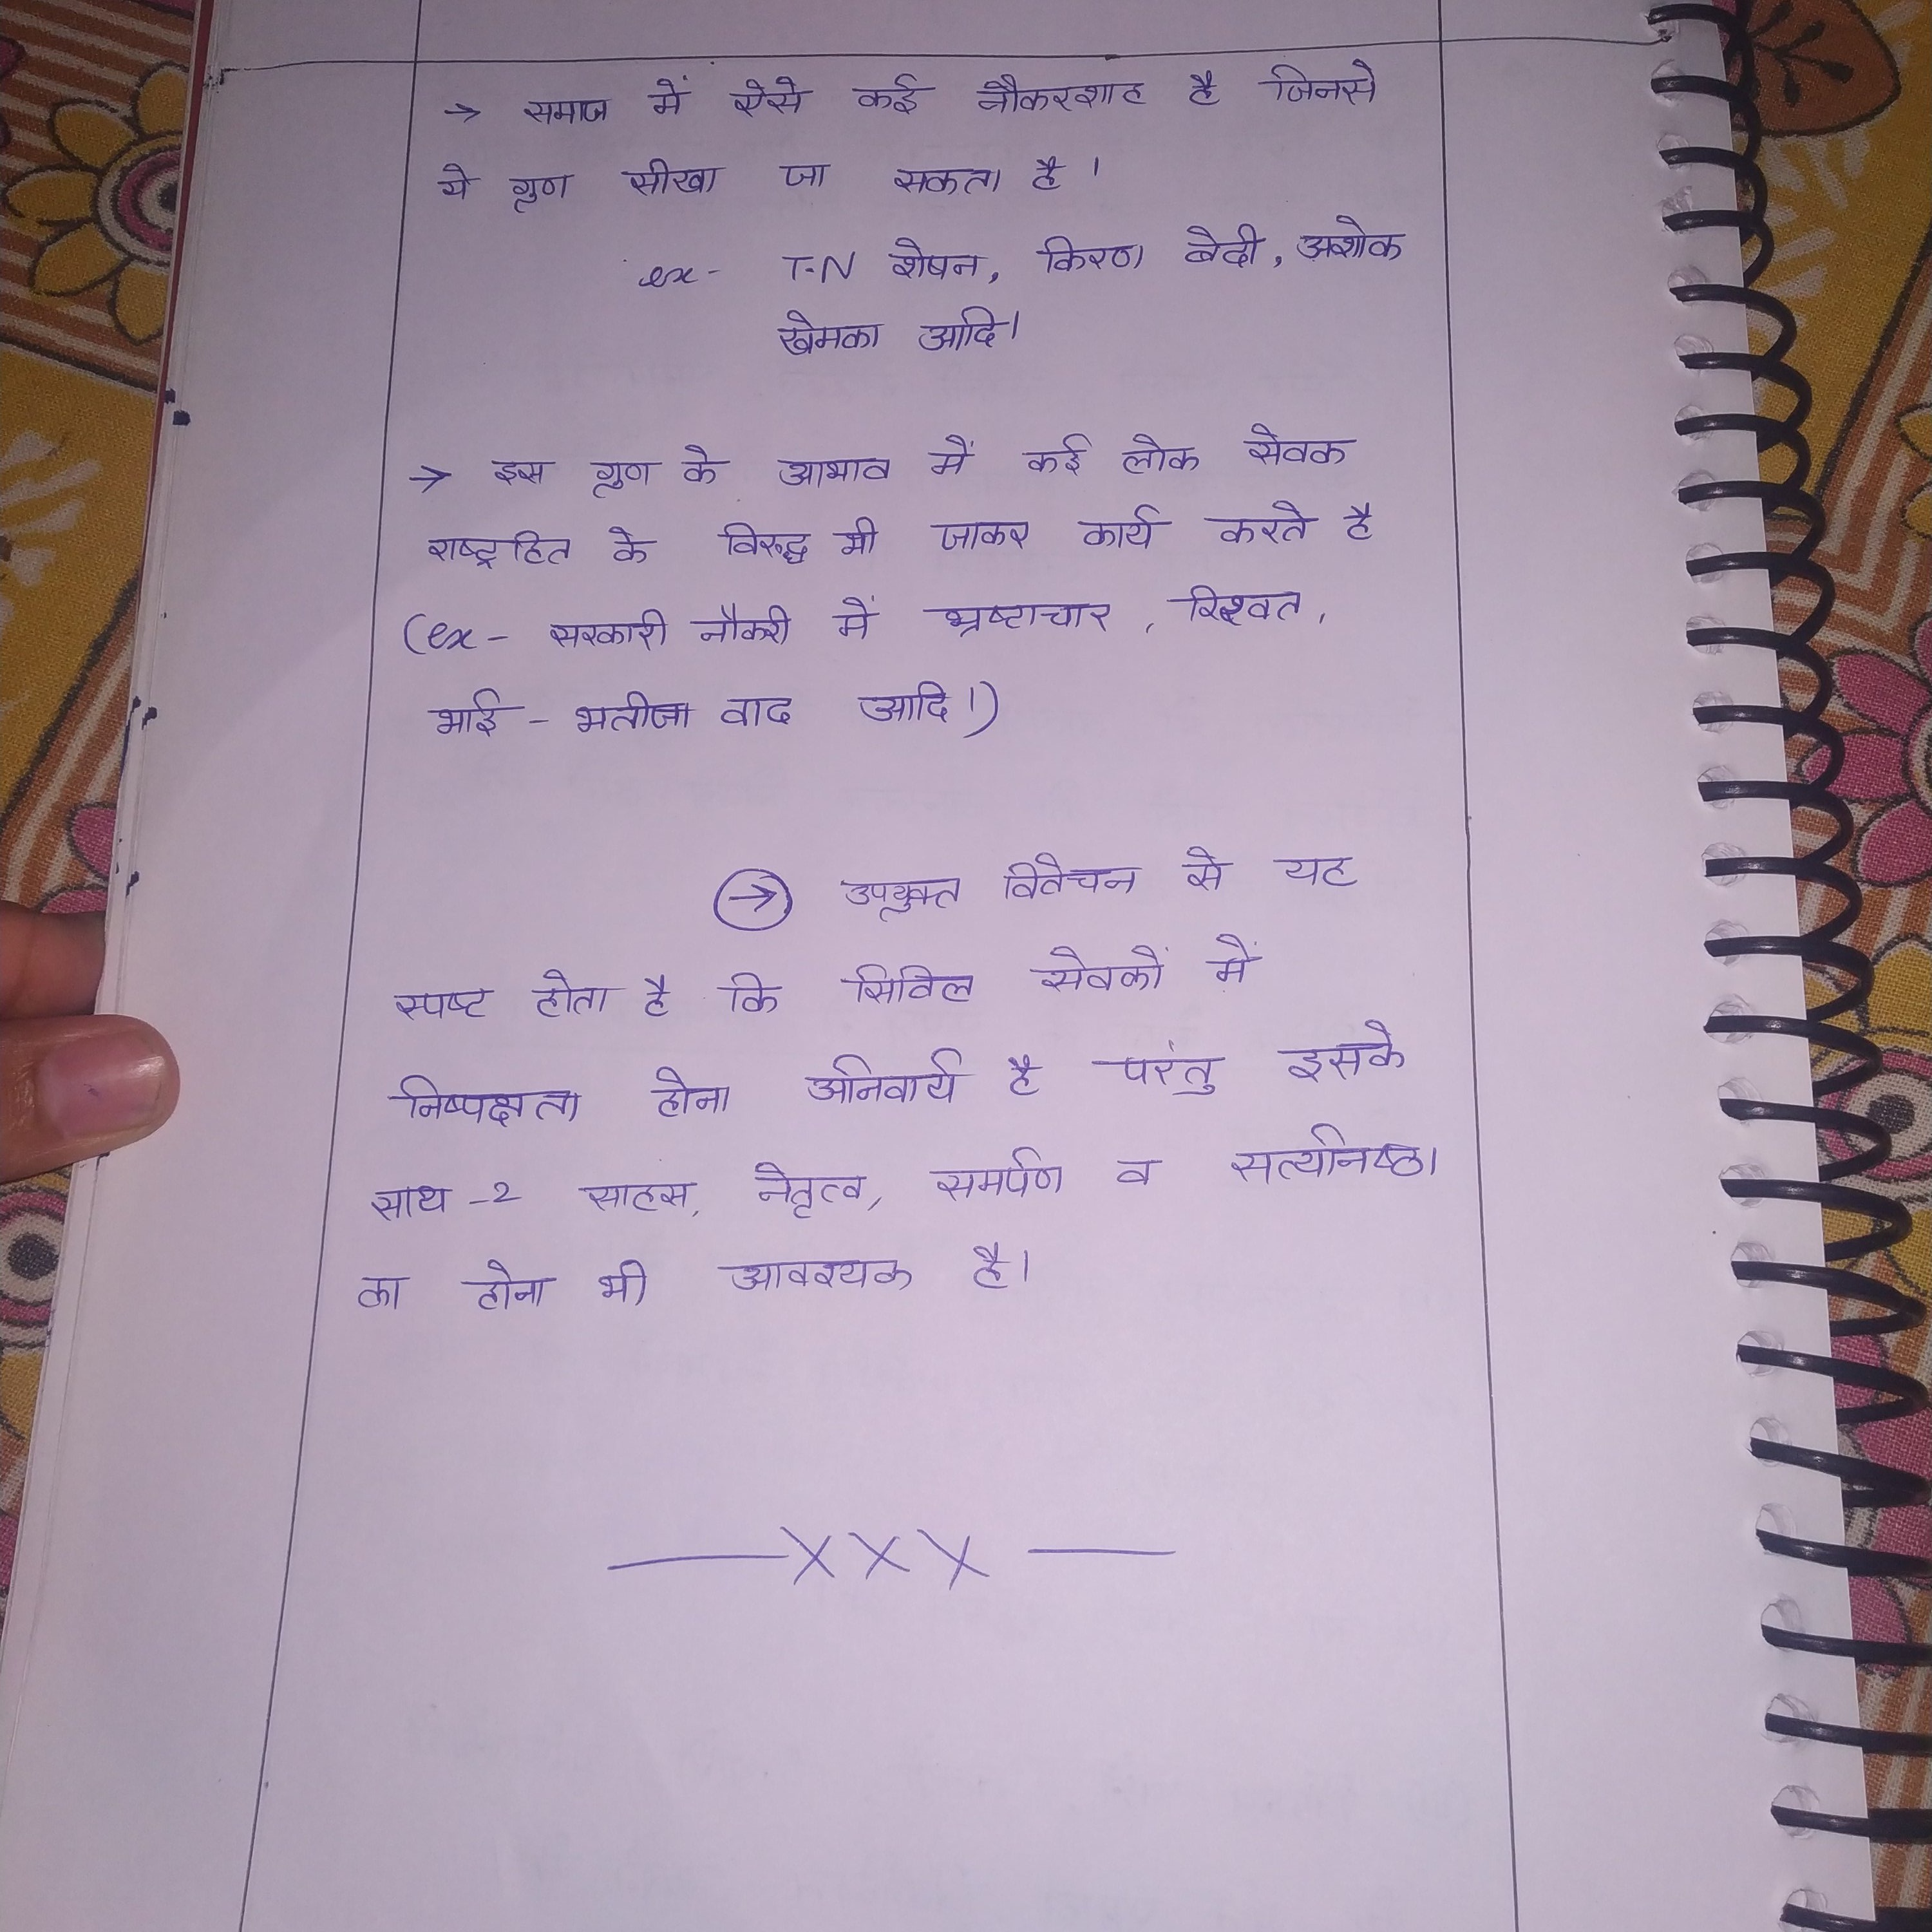 → समाज में ऐसे कई नौकरशाह है जिनसे
ये गुण सीखा जा सकता है।
ex- T-N शेषन, किरण बेदी, अशोक
खेमका आदि।
→ इस गुण के आभाव में कई लोक सेवक
राष्ट्रहित के विरुद्ध भी जाकर कार्य करते है
(ex- सरकारी नौकरी में भ्रष्टाचार, रिश्वत,
भाई - भतीजा वाद आदि।)
→ उपयुक्त विवेचन से यह
स्पष्ट होता है कि सिविल सेवकों में
निष्पक्षता होना अनिवार्य है परंतु इसके
साथ -2 साहस, नेतृत्व, समर्पण व सत्यनिष्ठा
का होना भी आवश्यक है।
—XXX—